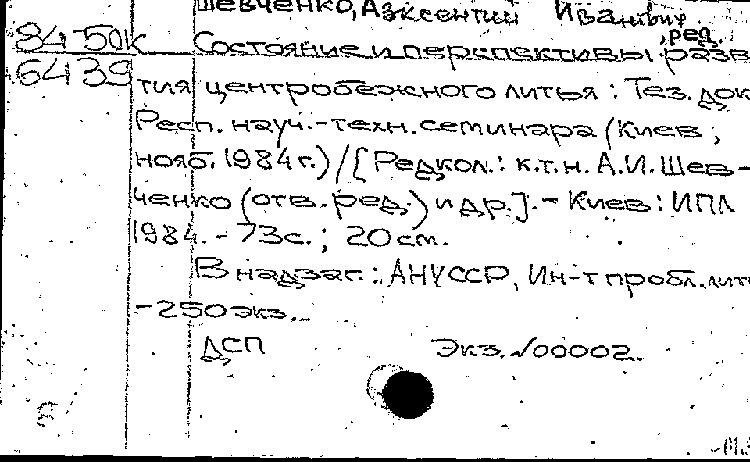 Шевченко, Авксентий Иванович, ред.
84-50К Состояние и перспективы разви
6439 тия центробежного литья: Тез. док
Респ. науч.-техн. семинара (Киев,
нояб. 1984 г.) / [Редкол.: к.т.н. А.И. Шев-
ченко (отв. ред.) и др.]. - Киев: ИПЛ
1984. - 73 с.; 20 см.
В надзаг.: АН УССР, Ин-т пробл. лит
-250 экз.
ДСП Экз. №00002.